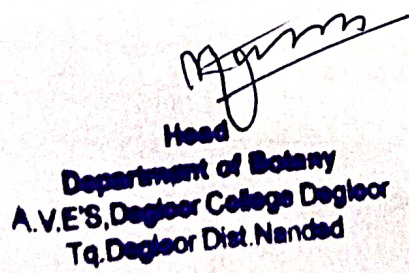 Head
Department of Botany
A.V.E'S, Degloor College Degloor
Tq. Degloor Dist. Nanded